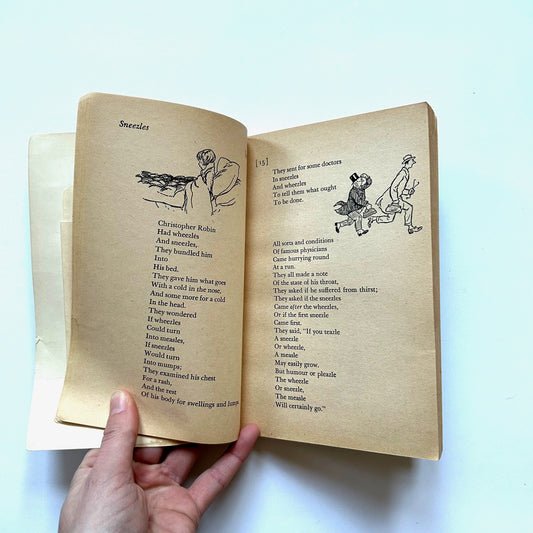 Sneezles
Christopher Robin
Had wheezles
And sneezles,
They bundled him
Into
His bed.
They gave him what goes
With a cold in the nose,
And some more for a cold
In the head.
They wondered
If wheezles
Could turn
Into measles,
If sneezles
Would turn
Into mumps;
They examined his chest
For a rash,
And the rest
Of his body for swellings and lumps.
[15]
They sent for some doctors
In sneezles
And wheezles
To tell them what ought
To be done.
All sorts and conditions
Of famous physicians
Came hurrying round
At a run.
They all made a note
Of the state of his throat,
They asked if he suffered from thirst;
They asked if the sneezles
Came after the wheezles,
Or if the first sneezle
Came first.
They said, "If you teazle
A sneezle
Or wheezle,
A measle
May easily grow.
But humour or pleazle
The wheezle
Or sneezle,
The measle
Will certainly go."